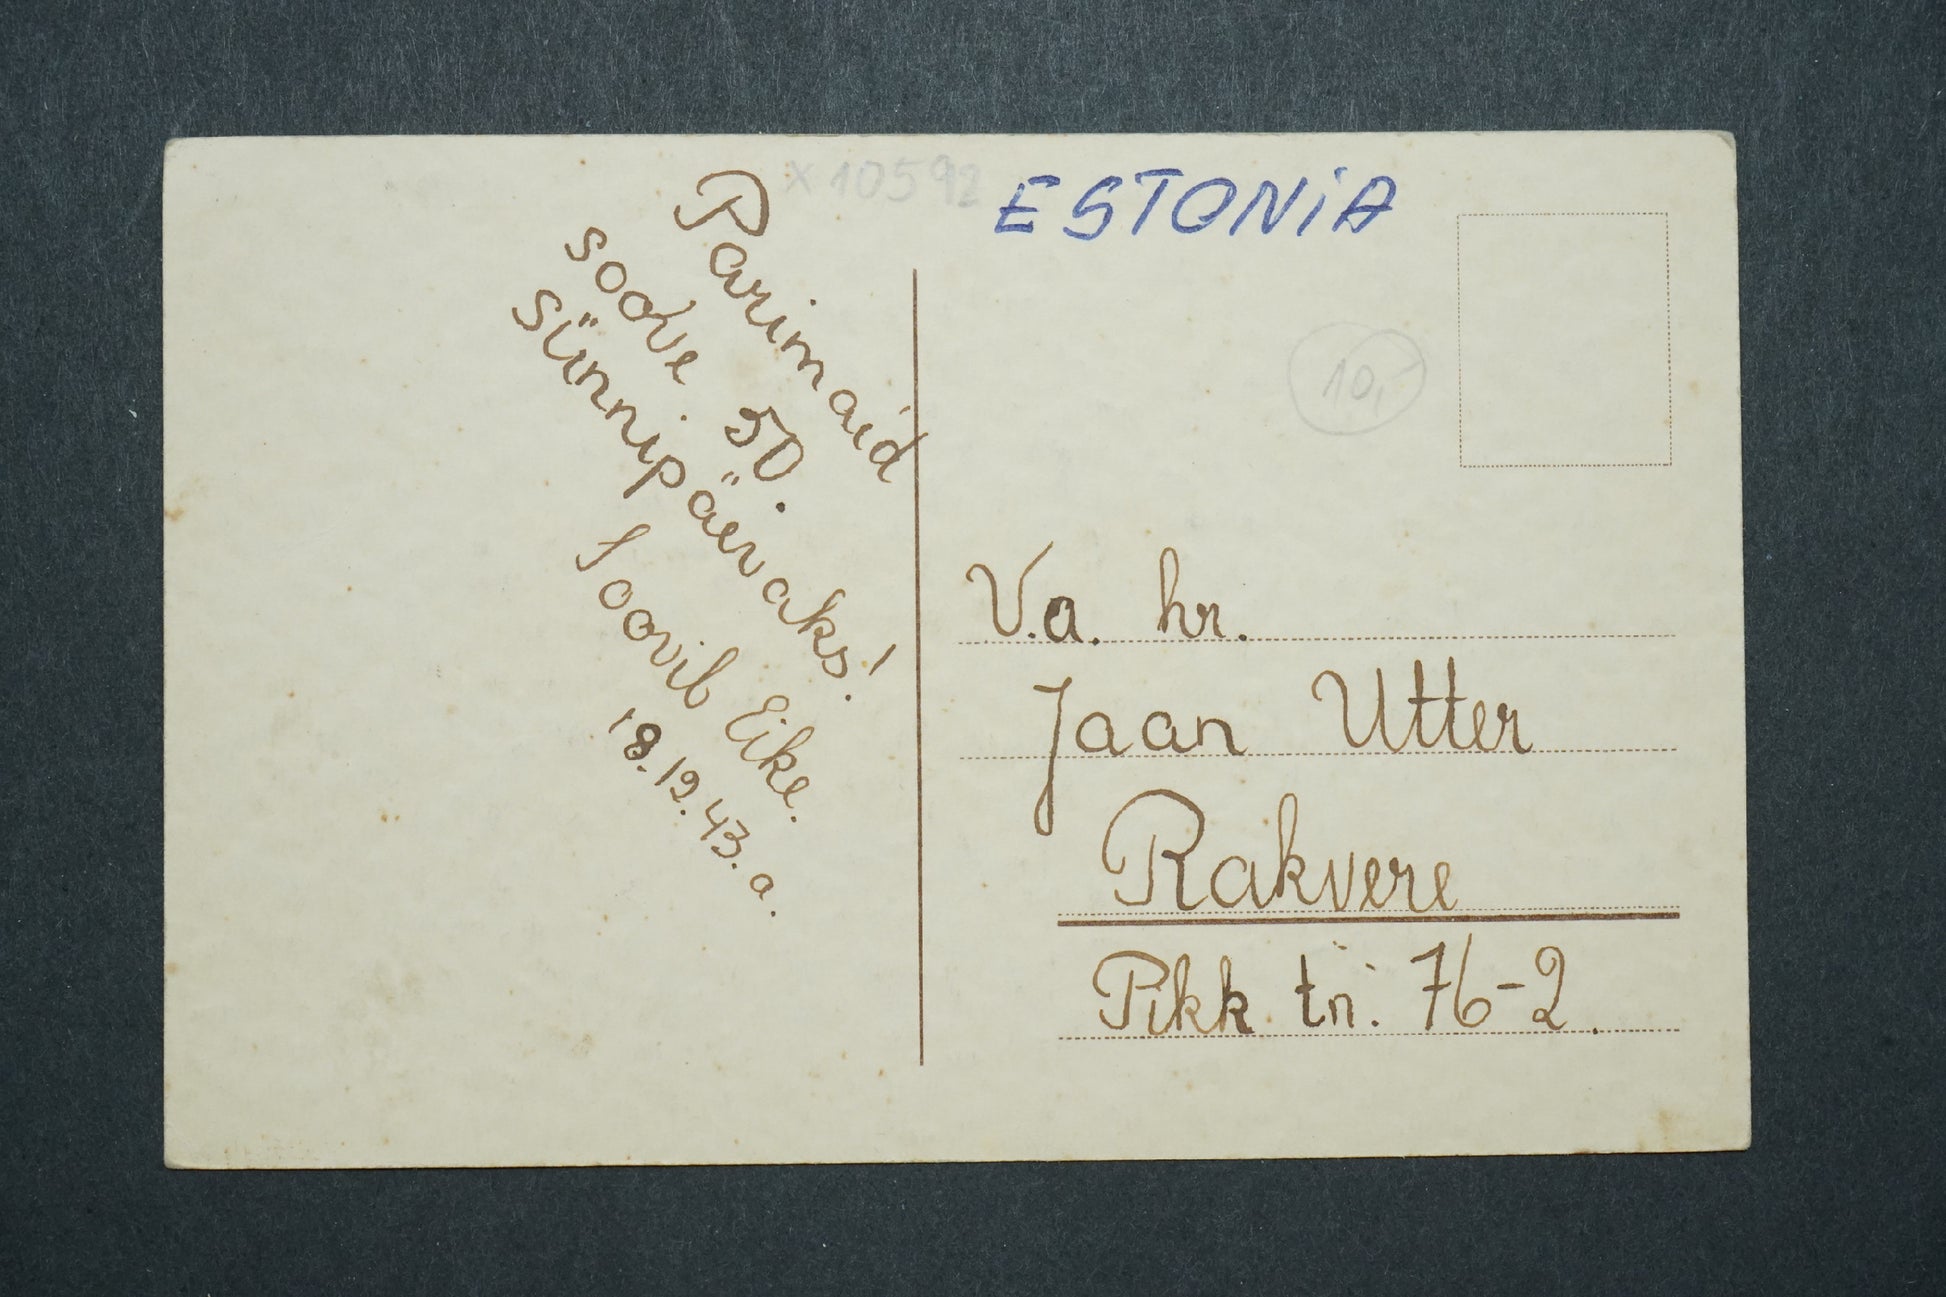 x 10592
ESTONiA
10,-
Parimaid
soove 50.
Sünnipäevaks!
Soovib Eike.
18.12.43.a.
V.a. hr.
Jaan Utter
Rakvere
Pikk tn. 76-2.